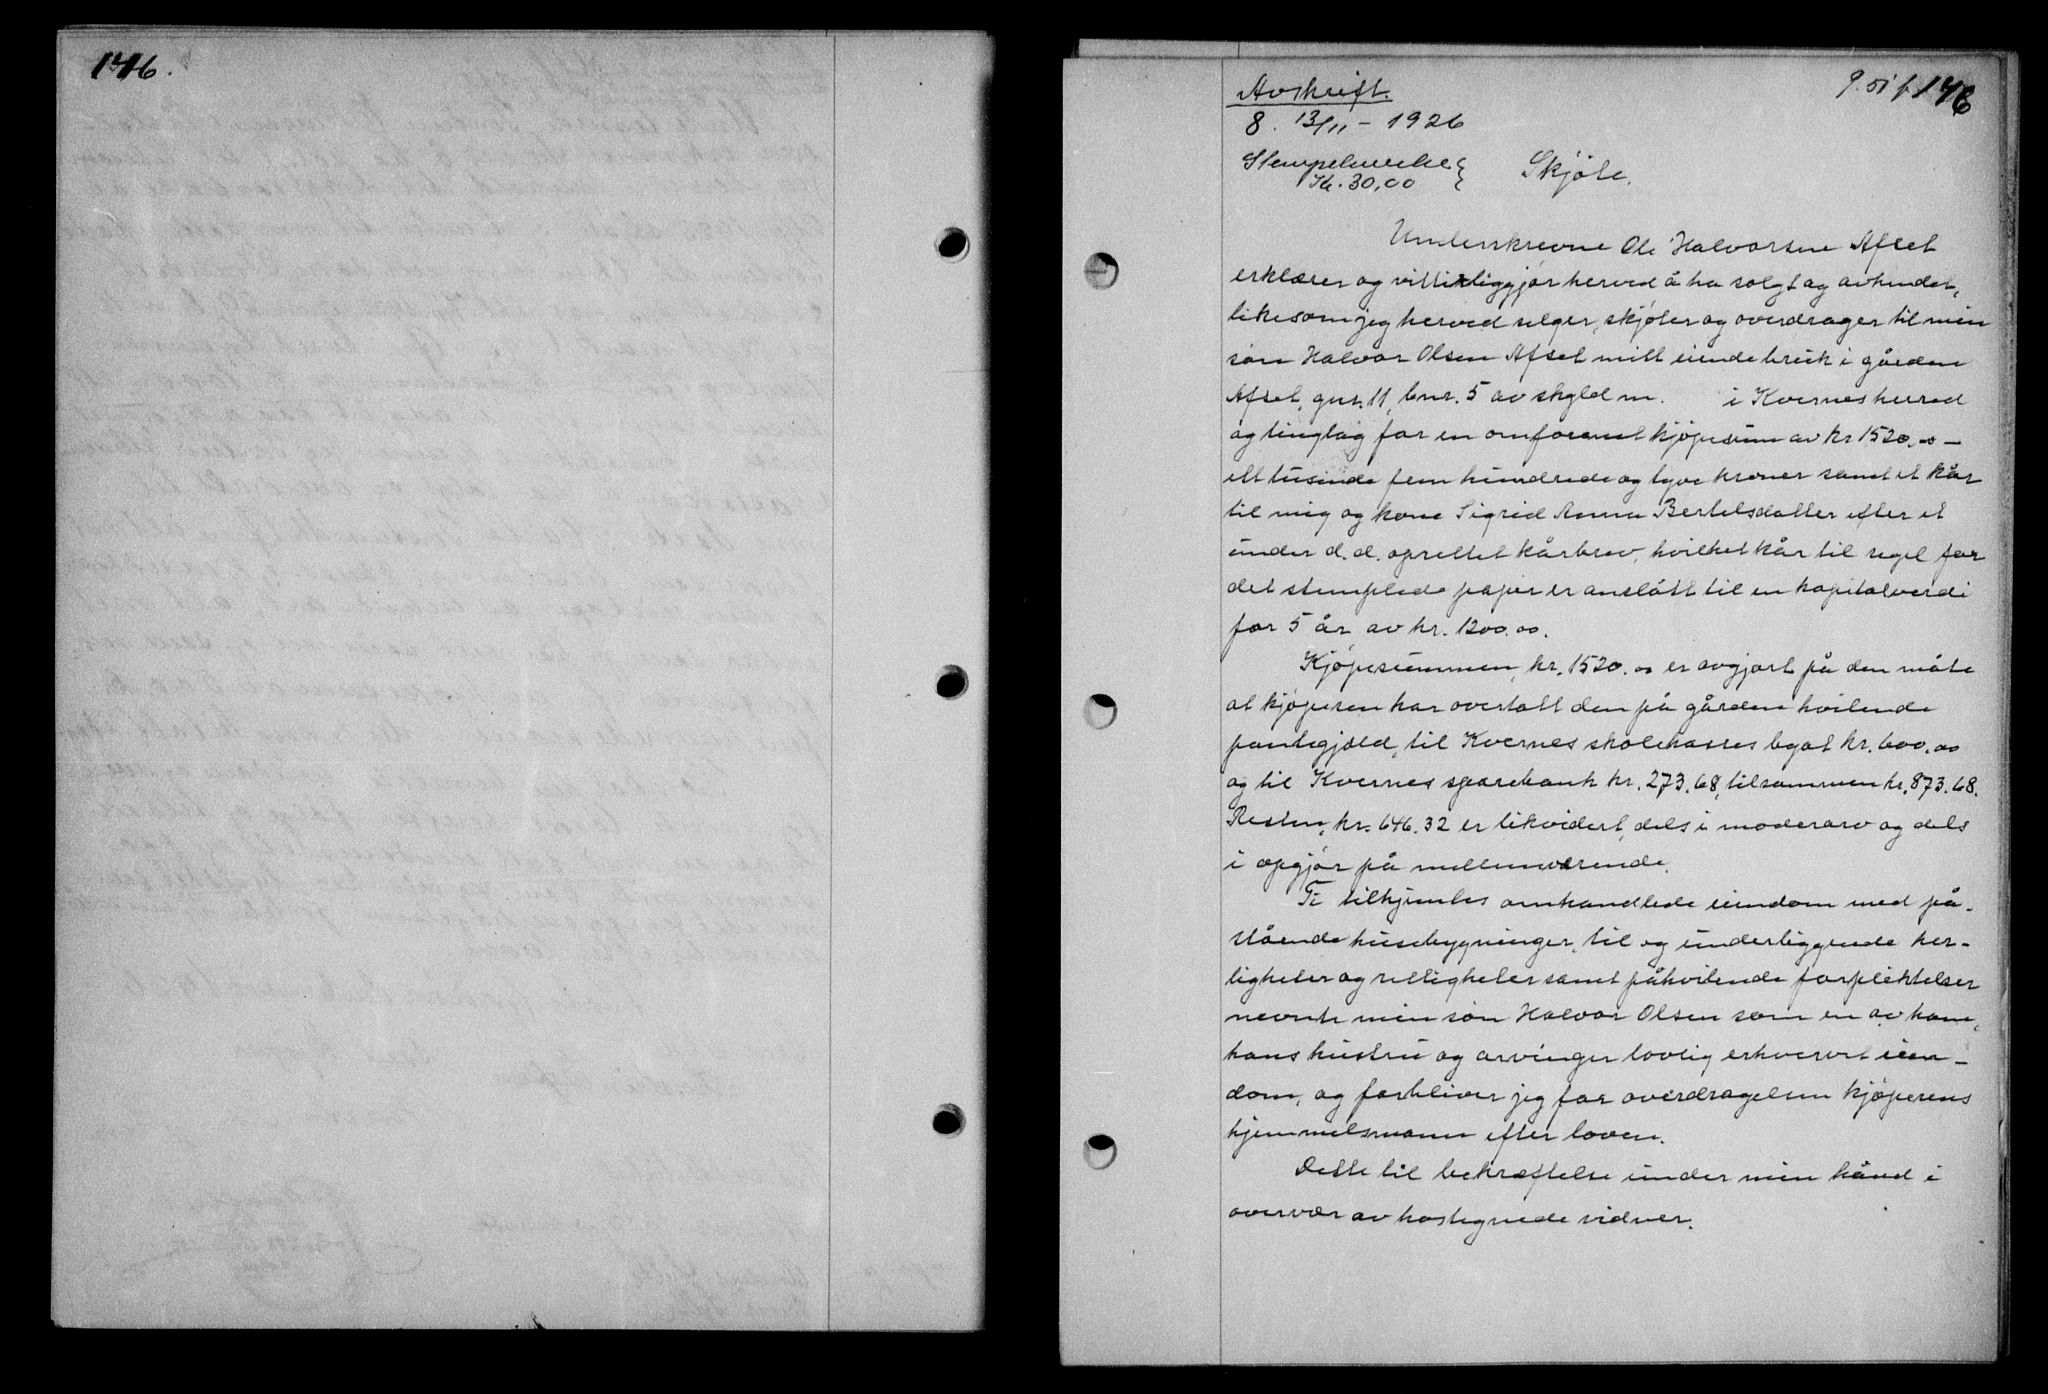 146.
9.51 f 146
Avskrift.
8. 13/11 - 1926
Stempelmerke
Kr. 30,00
Skjöte.
Underskrevne Ole Halvorsen Afset
erklærer og vitterliggjør herved å ha solgt og avhendet,
likesom jeg herved selger, skjöter og overdrager til min
sön Halvor Olsen Afset mitt eiende bruk i gården
Afset, gnr. 11, bnr. 5 av skyld m. i Kvernes herred
og tinglag for en omforenet kjöpesum av kr 1520.00 -
ett tusinde fem hundrede og tyve kroner samt et kår
til mig og kone Sigrid Anna Bertelsdatter efter et
under d.d. oprettet kårbrev, hvilket kår til regel for
det stemplede papir er anslått til en kapitalverdi
for 5 år av kr. 1200.00.
Kjöpesummen, kr. 1520.00 er avgjort på den måte
at kjöperen har overtatt den på gården hvilende
pantegjæld, til Kvernes skolekasses legat kr. 600.00
og til Kvernes sparebank kr. 273.68, tilsammen kr. 873.68.
Resten, kr. 646.32 er likvidert, dels i modearv og dels
i opgjör på mellemværende.
Ti tilhjemles omhandlede eiendom med på-
stående husebygninger, til og underliggende her-
ligheter og rettigheter samt påhvilende forpliktelser
nevnte min sön Halvor Olsen som en av ham,
hans hustru og arvinger lovlig erhvervet eien-
dom, og forbliver jeg for overdragelsen kjöperens
hjemmelsmann efter loven.
Dette til bekræftelse under min hånd i
overvær av hostegnede vidner.